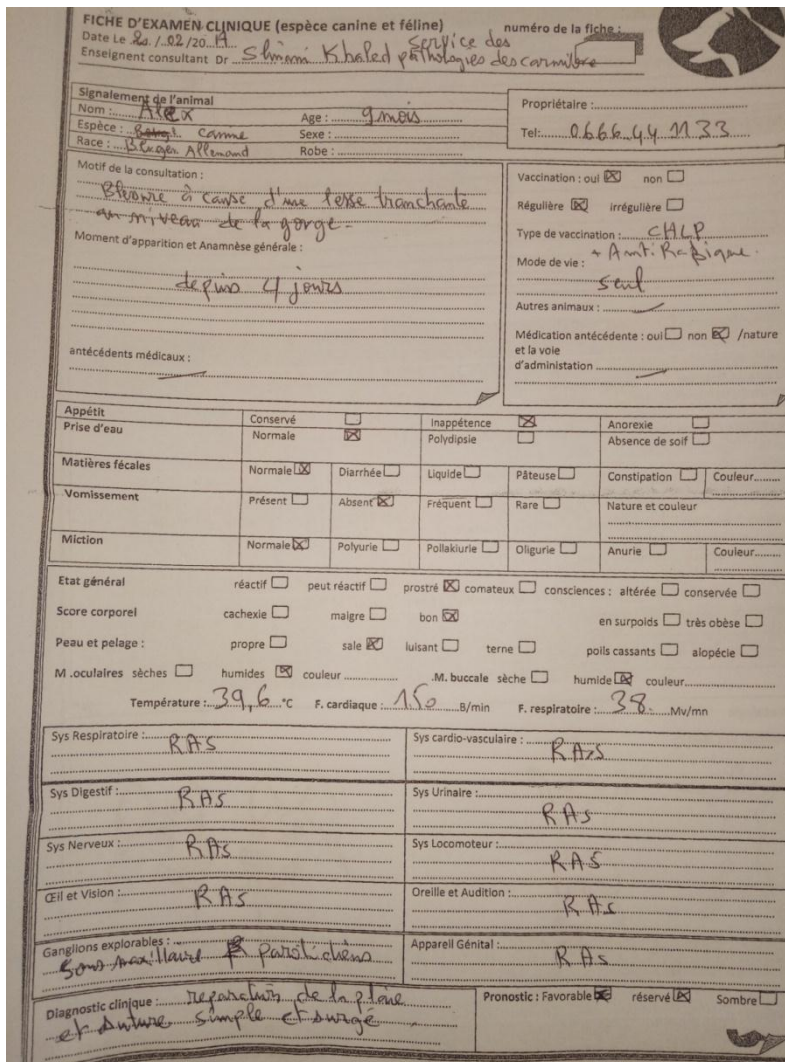 FICHE D'EXAMEN CLINIQUE (espèce canine et féline)
numéro de la fiche :
Date Le 20/02/2019
Service des
Enseignent consultant Dr Slimani Khaled pathologies des carnivore
Signalement de l'animal
Nom : Alex Age : 9 mois
Espèce : canine Sexe :
Race : Berger Allemand Robe :
Propriétaire :
Tel: 0666 44 11 33
Motif de la consultation :
Blessure à cause d'une lesse tranchante
au niveau de la gorge -
Moment d'apparition et Anamnèse générale :
depuis 4 jours
antécédents médicaux :
Vaccination : oui non
Régulière irrégulière
Type de vaccination : CHLP
+ Anti. Rabique.
Mode de vie :
seul
Autres animaux :
Médication antécédente : oui non /nature
et la voie
d'administation
Appétit Conservé Inappétence Anorexie
Prise d'eau Normale Polydipsie Absence de soif
Matières fécales Normale Diarrhée Liquide Pâteuse Constipation Couleur
Vomissement Présent Absent Fréquent Rare Nature et couleur
Miction Normale Polyurie Pollakiurie Oligurie Anurie Couleur
Etat général réactif peut réactif prostré comateux consciences : altérée conservée
Score corporel cachexie maigre bon en surpoids très obèse
Peau et pelage : propre sale luisant terne poils cassants alopécie
M .oculaires sèches humides couleur .M. buccale sèche humide couleur
Température : 39,6 °C F. cardiaque : 150 B/min F. respiratoire : 38 Mv/mn
Sys Respiratoire : RAS
Sys cardio-vasculaire : RAS
Sys Digestif : RAS
Sys Urinaire : RAS
Sys Nerveux : RAS
Sys Locomoteur : RAS
Œil et Vision : RAS
Oreille et Audition : RAS
Ganglions explorables :
Sous maxillaire parotidiens
Appareil Génital : RAS
Diagnostic clinique : reparation de la plaie
et suture simple et surgé
Pronostic : Favorable réservé Sombre